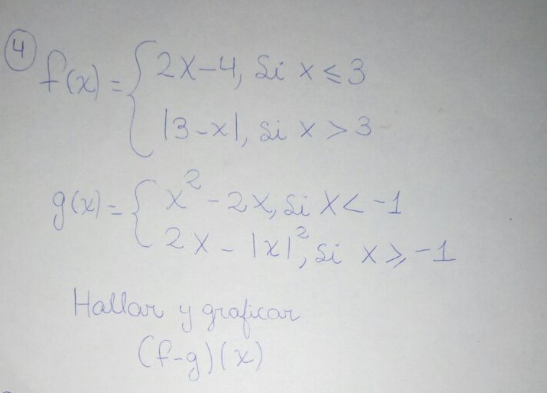 4
f(x) = { 2x-4, si x ≤ 3
|3-x|, si x > 3
g(x) = { x² - 2x, si x < -1
2x - |x|², si x ≥ -1
Hallar y graficar
(f-g)(x)